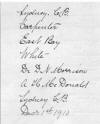 Sydney, C.B.
Carpenter
East Bay
White
Dr. D. A. Morrison
A. H. McDonald
Sydney C.B.
1st 1910